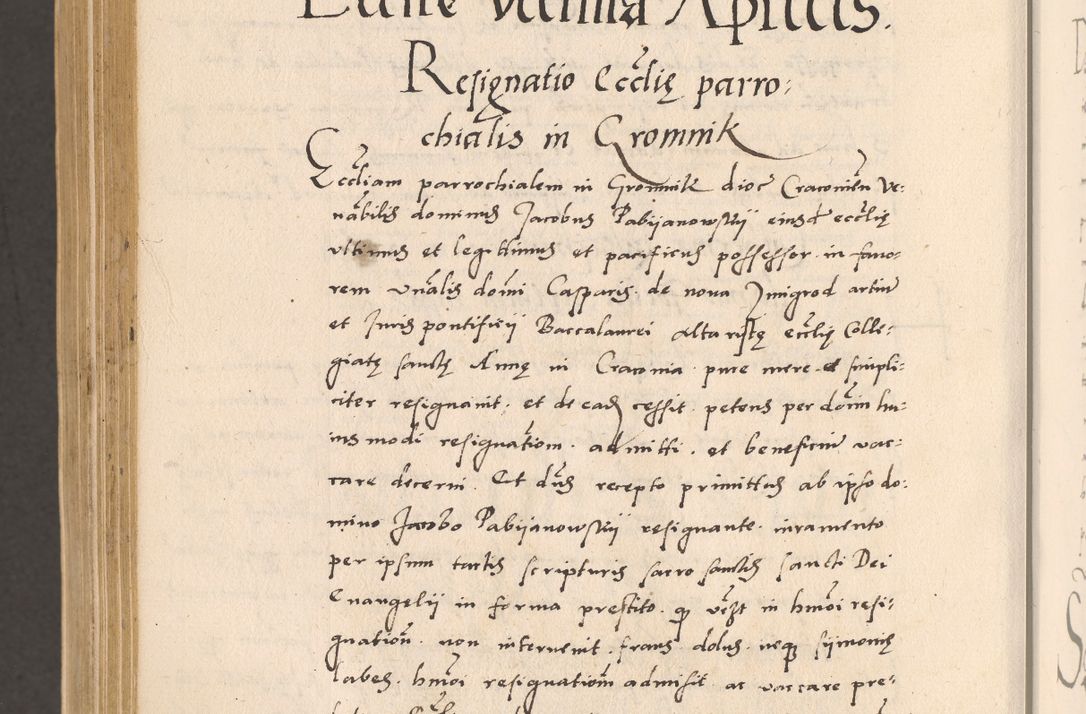 Lune ultima Aprilis.
Resignatio Eccłię parro:
chialis in Gromnik
Eccłiam parrochialem in Gromnik dioc Craconień Ve:
nãbilis dominus Jacobus Pabijanowskij eiusd eccłię
ultimus et legittimus et pacificus possessor in favo:
rem Vnãlis domĩ Casparis de nova Zmigrod artiũ
et Juris pontificij Baccalaurei altaristę eccłię Colle:
giatę sanctę Annę in Craconia pure mere et simpli:
citer resignavit. et de ead cessit. petens per dom̃ hu:
iusmodi resignatiom̃. admitti. et beneficiũ vac:
care decerni. Et dñs recepto primittus ab ipso do:
mino Jacobo Pabijanowskij resignante. iuramento
per ipsum tactis scripturis sacro sanctis sancti Dei
Euangelij in forma prestito. q in hmõi resi:
gnatioñ. non intervenit. fraus dolus. neq sijmonię
labes. hmõi resignatiom̃ admisit ac vaccare pre: